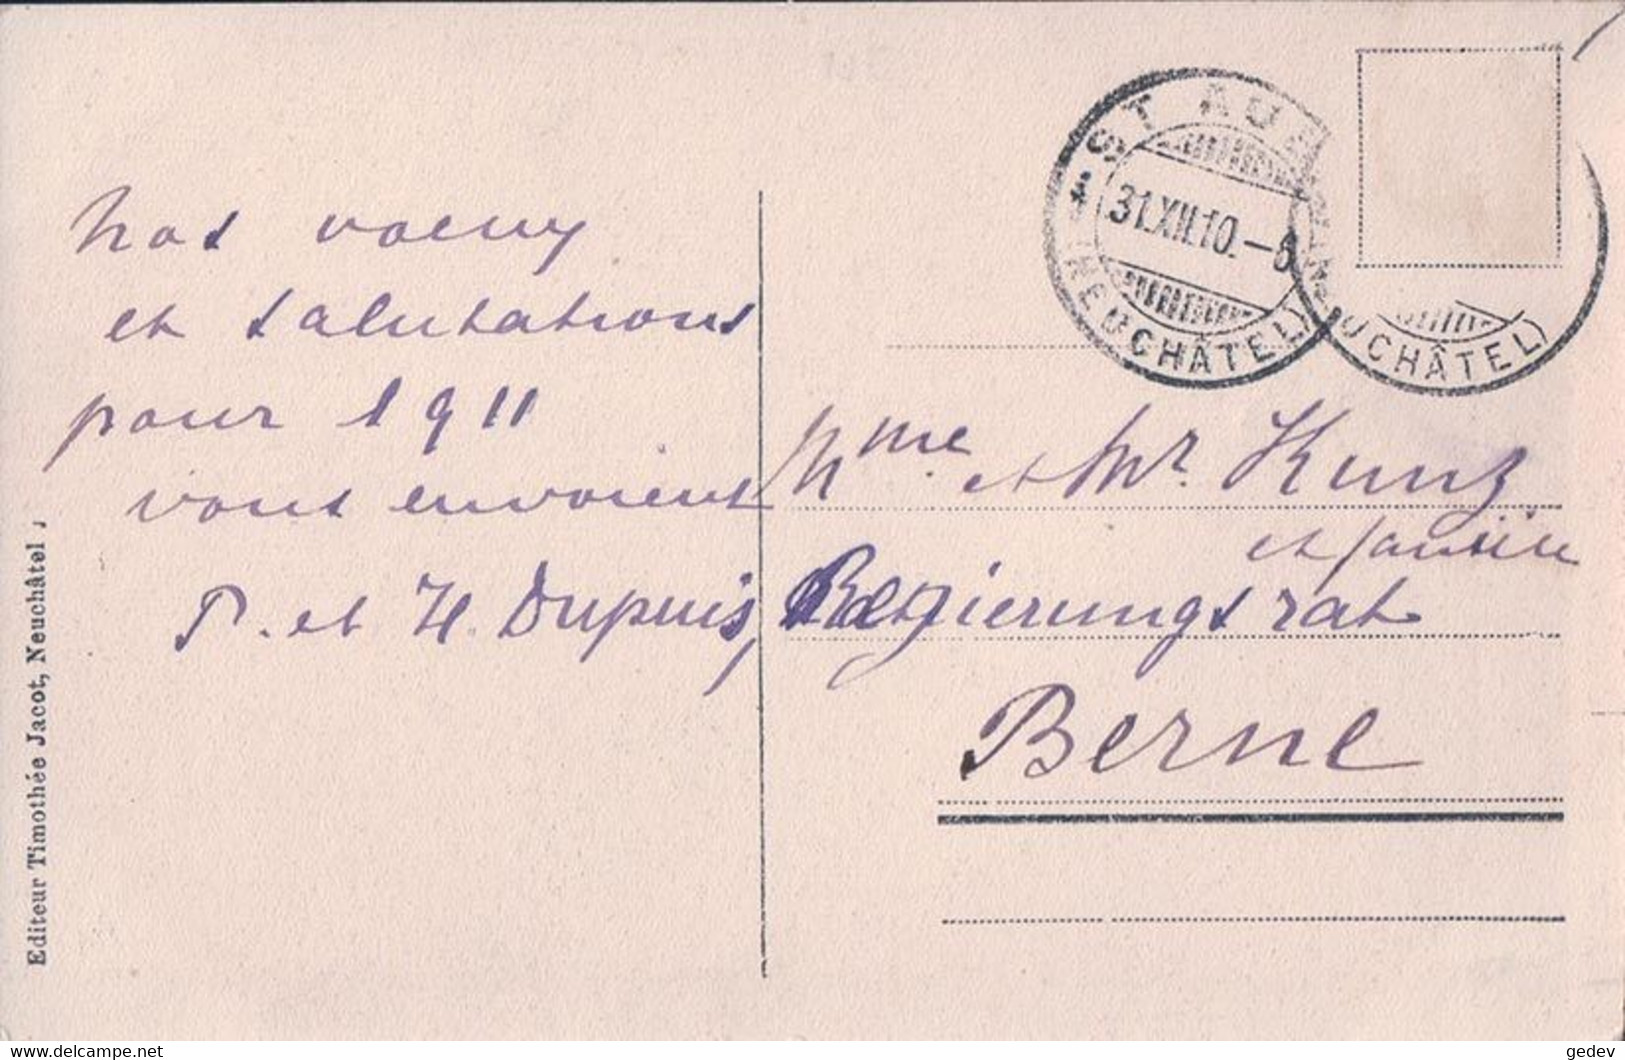 nos voeux
et salutations
pour 1911
vous envoient
P. et H. Dupuis,
Mme et Mr. Kunz
et famille
Regierungsrat
Berne
ST AUBIN
31.XII.10.-6
(NEUCHÂTEL)
UCHÂTEL)
Editeur Timothée Jacot, Neuchâtel
delcampe.net
gedev